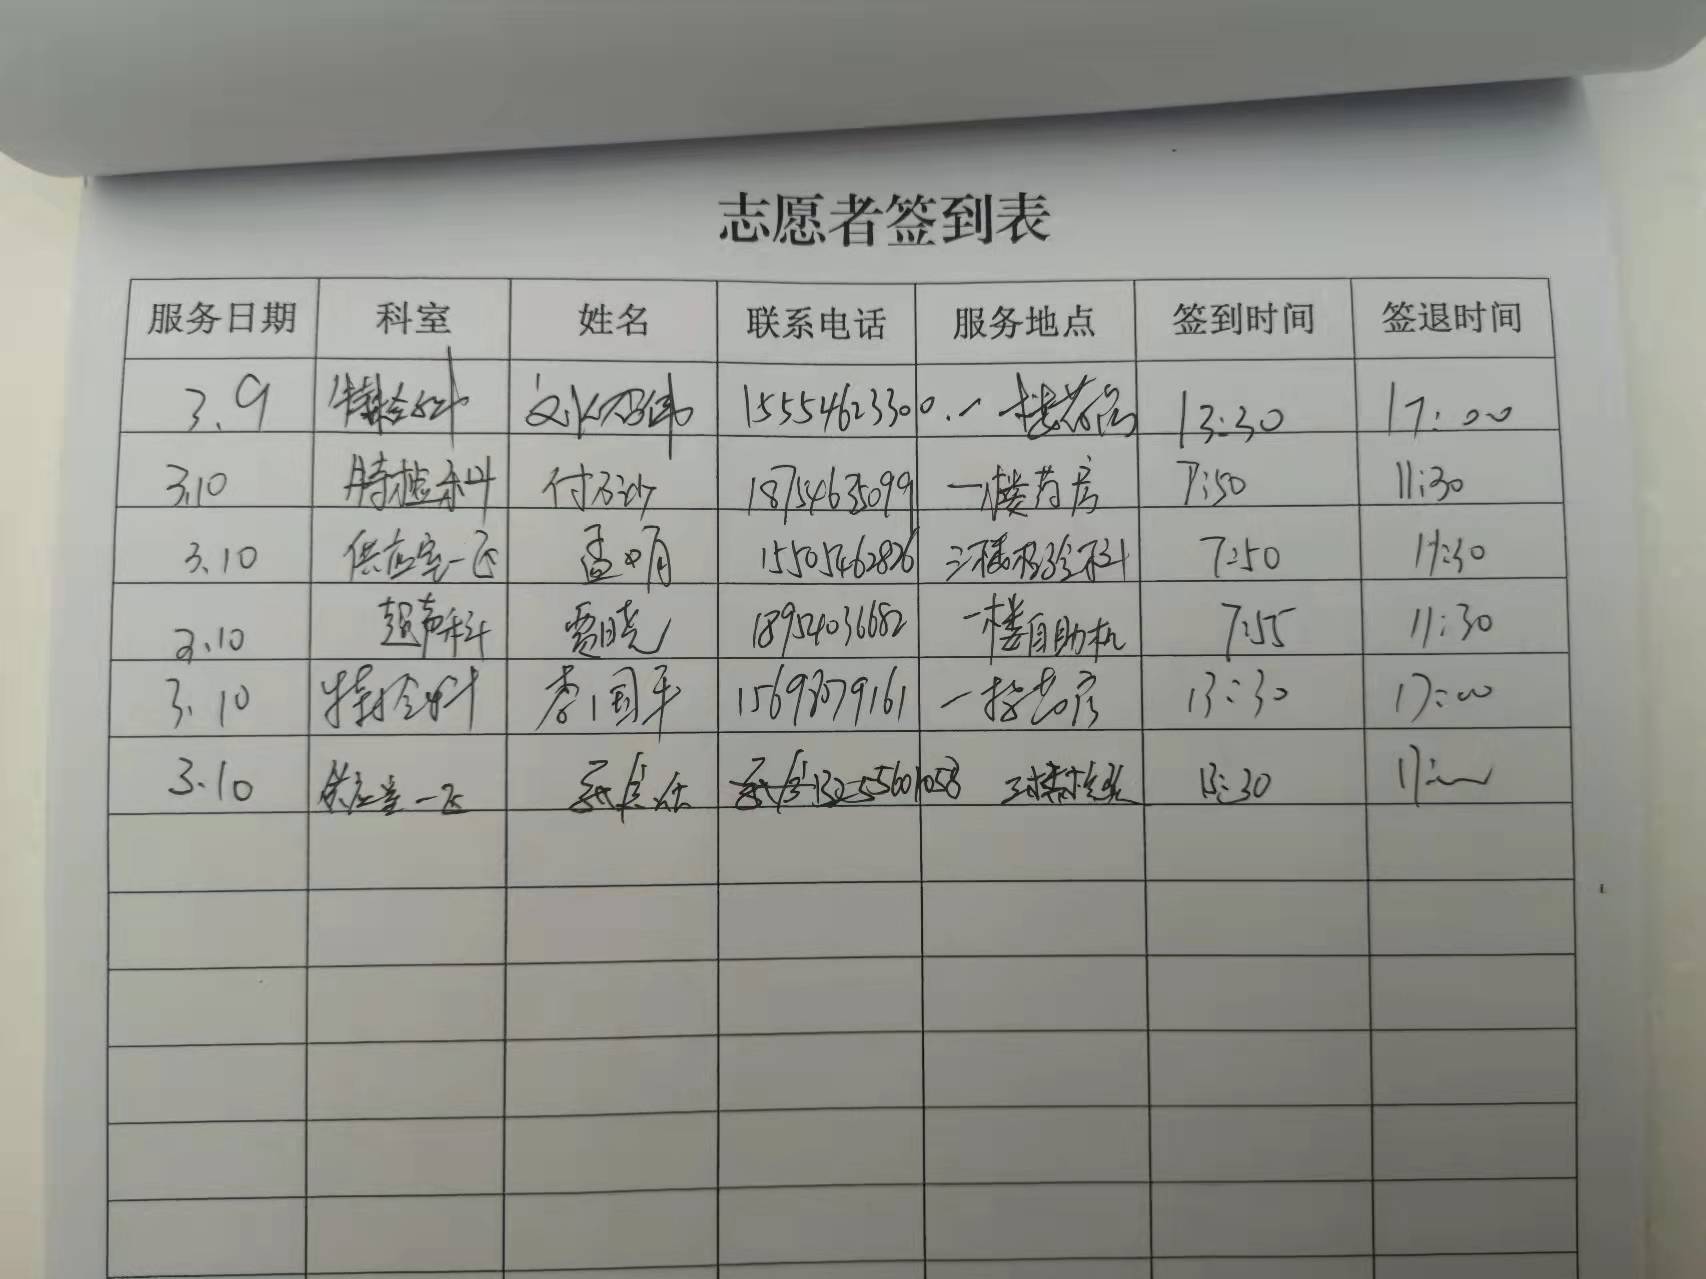 志愿者签到表
服务日期 科室 姓名 联系电话 服务地点 签到时间 签退时间
3.9 特检科 15554623300 一楼药房 13:30 17:00
3.10 特检科 18754635099 一楼药房 7:50 11:30
3.10 供应室一区 孟 15505462826 三楼检验科 7:50 11:30
3.10 超声科 贾晓 18954036682 一楼自助机 7:55 11:30
3.10 特检科 李国平 一楼药房 13:30 17:00
3.10 供应室一区 三楼检验 13:30 17:00